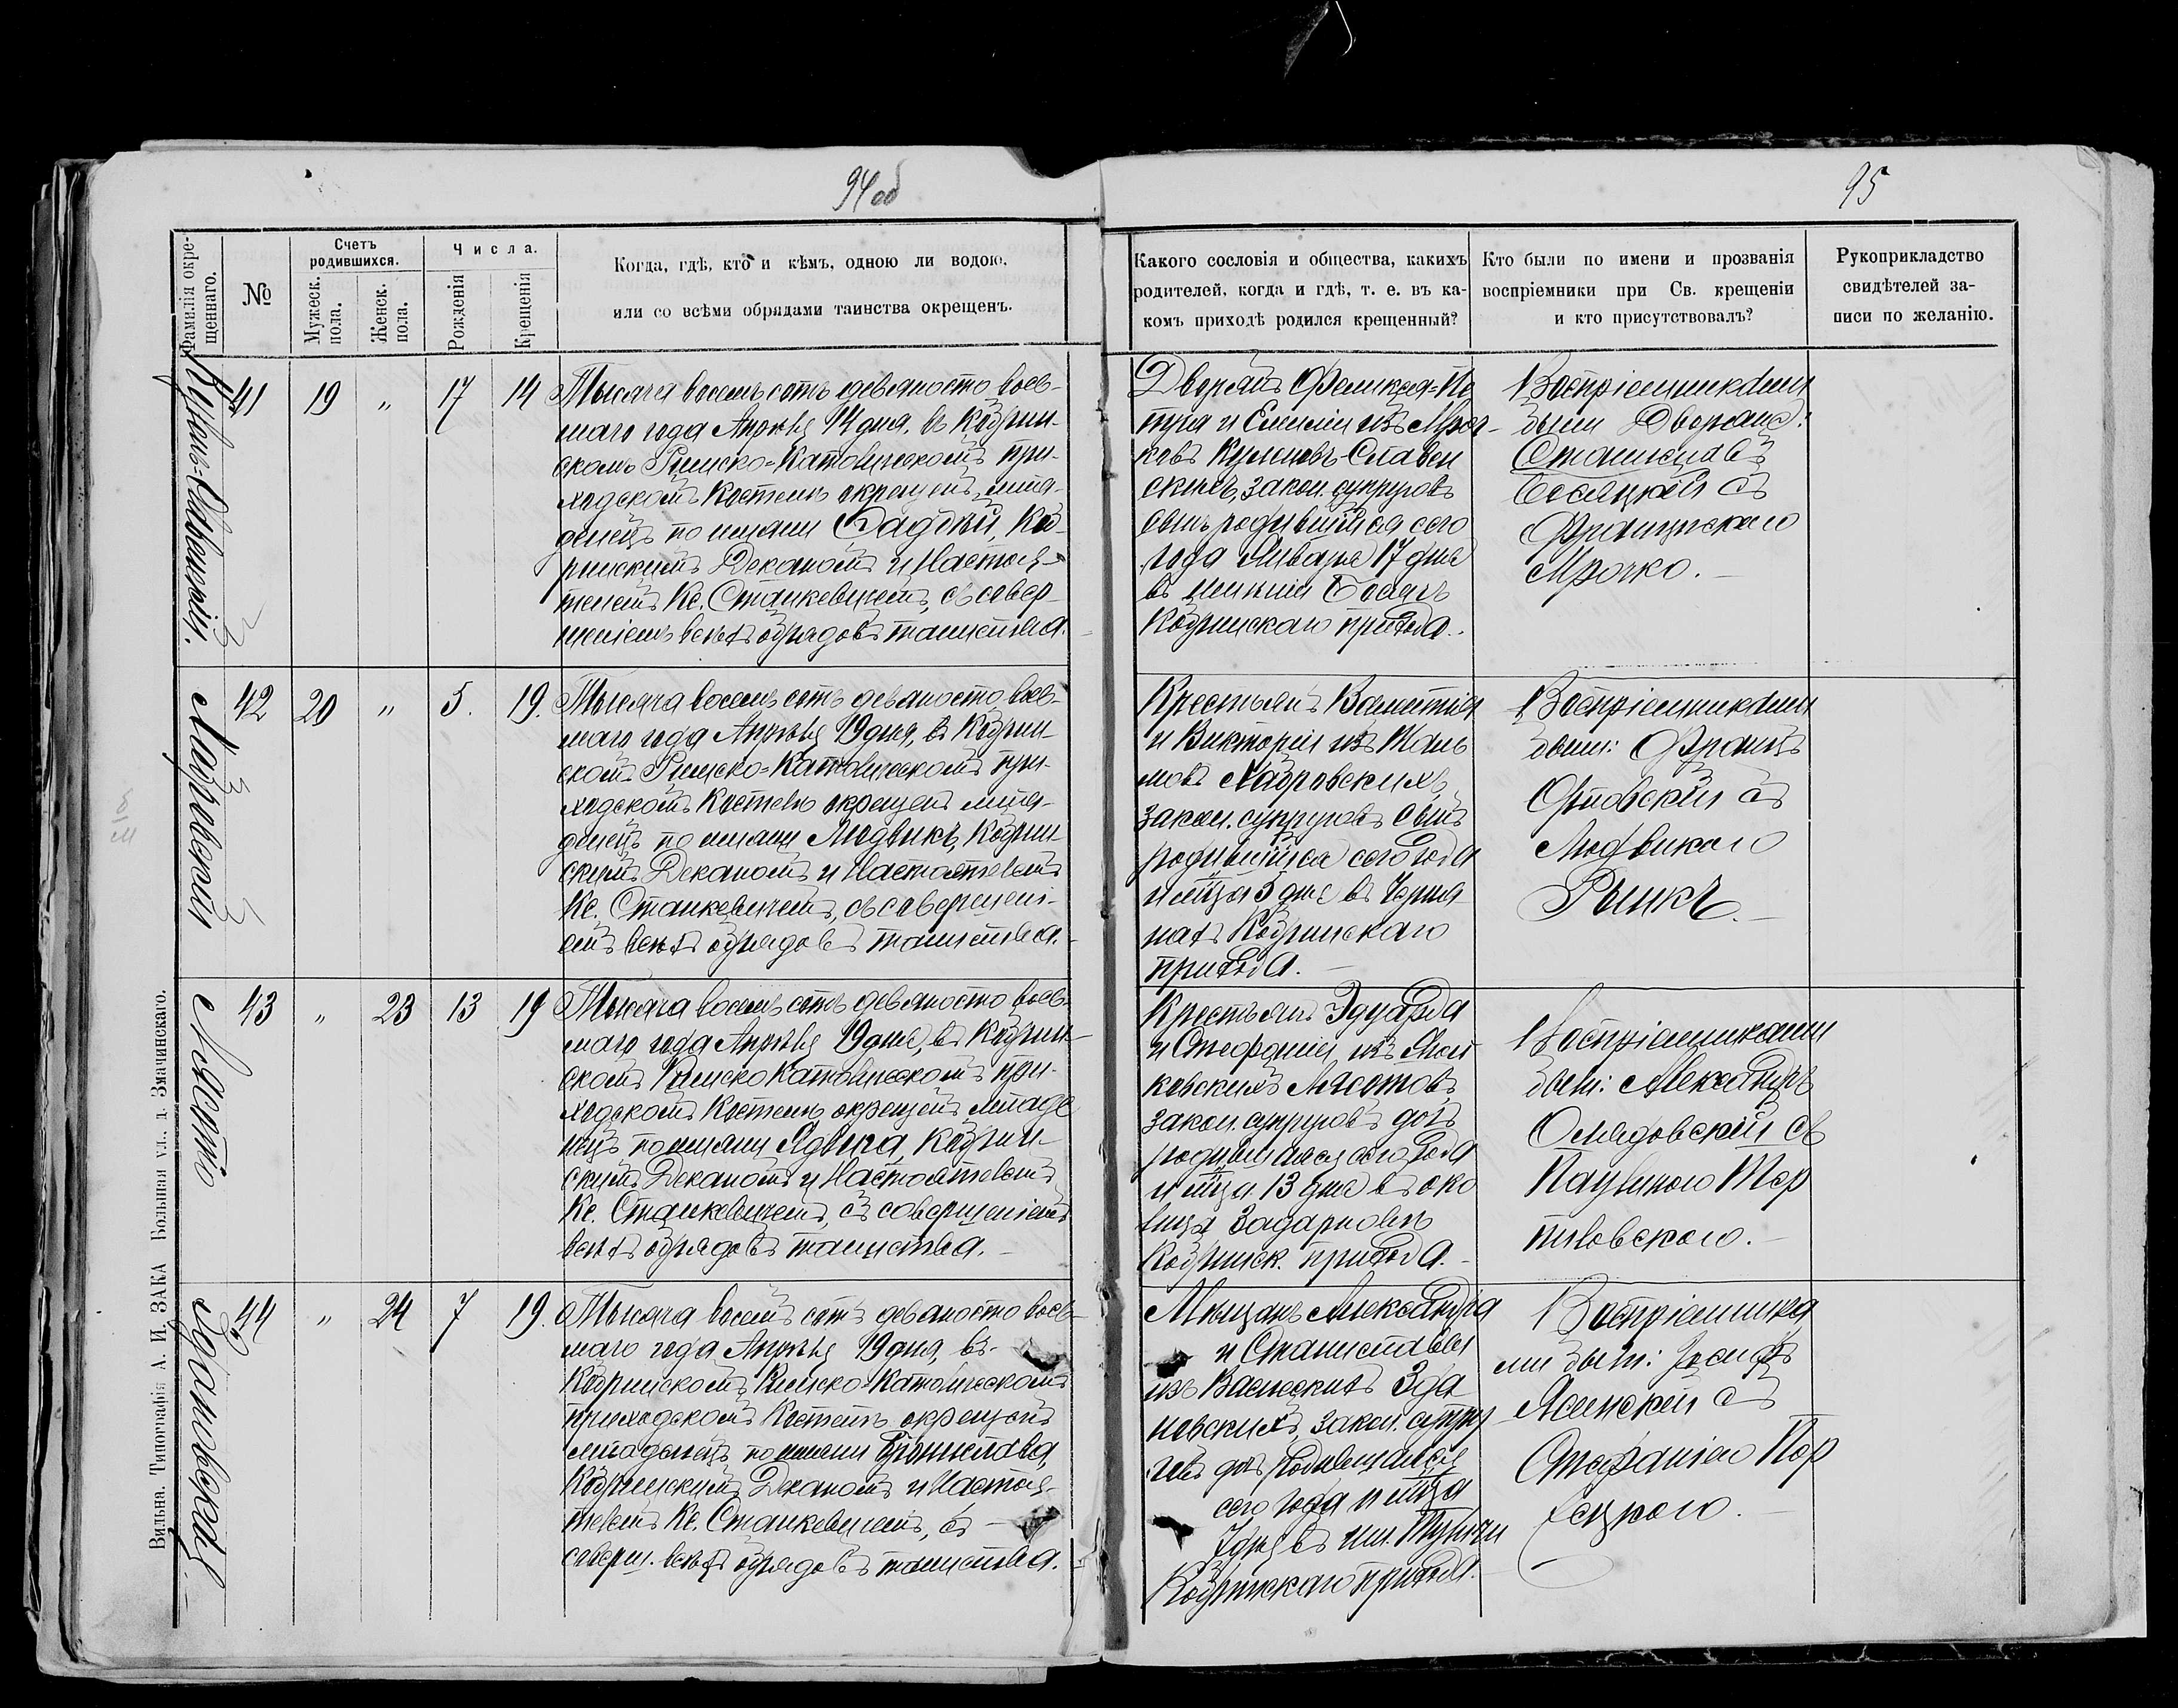 94 об
95
Фамилія окре-
щеннаго.
№
Счетъ
родившихся.
Мужеск.
пола.
Женск.
пола.
Числа.
Рожденія
Крещенія
Когда, гдѣ, кто и кѣмъ, одною ли водою,
или со всѣми обрядами таинства окрещенъ.
Какого сословія и общества, какихъ
родителей, когда и гдѣ, т. е. въ ка-
комъ приходѣ родился крещенный?
Кто были по имени и прозванія
воспріемники при Св. крещеніи
и кто присутствовалъ?
Рукоприкладство
свидѣтелей за-
писи по желанію.
41
19
"
17
14
Тысяча восемь сотъ девяносто вось-
маго года Апрѣля 14 дня, въ Кобрин-
скомъ Римско-Католическомъ при-
ходскомъ Костелѣ окрещенъ мла-
денецъ по имени Фаддей, Ко-
бринскимъ Деканомъ и Настоя-
телемъ Кс. Станкевичемъ, съ совер-
шеніемъ всѣхъ обрядовъ таинства.
Дворянъ Феликса-
и Емиліи изъ Мроч-
ковъ
скихъ, закон. супруговъ
сынъ, родившійся сего
года Января 17 дня
въ имѣніи
Кобринскаго прихода.
Воспріемниками
были Дворяне:
Станиславъ
съ
Францискою
Мрочко.
Лабровскій
42
20
"
5.
19.
Тысяча восемь сотъ девяносто вось-
маго года Апрѣля 19 дня, въ Кобрин-
скомъ Римско-Католическомъ при-
ходскомъ Костелѣ окрещенъ мла-
денецъ по имени Людвикъ, Кобрин-
скимъ Деканомъ и Настоятелемъ
Кс. Станкевичемъ, съ совершені-
емъ всѣхъ обрядовъ таинства.
Крестьянъ
и Викторіи изъ
Лабровскихъ,
закон. супруговъ сынъ
родившійся сего года
и м-ца 5 дня въ
Кобринскаго
прихода.
Воспріемниками
были: Францъ
съ
Людвикою
Рынкъ.
Лясото
43
"
23
13
19
Тысяча восемь сотъ девяносто вось-
маго года Апрѣля 19 дня, въ Кобрин-
скомъ Римско Католическомъ при-
ходскомъ Костелѣ окрещенъ младе
нецъ по имени Ядвига, Кобрин-
скимъ Деканомъ и Настоятелемъ
Кс. Станкевичемъ, съ совершеніемъ
всѣхъ обрядовъ таинства.
Крестьянъ Эдуарда
и Стефаніи изъ
Лясотовъ,
закон. супруговъ дочь
родившаяся сего года
и м-ца 13 дня въ око
лицѣ
Кобринск. прихода.
Воспріемниками
были: Александръ
съ
Паулиною
Ждановская
44
"
24
7
19.
Тысяча восемь сотъ девяносто вось-
маго года Апрѣля 19 дня, въ
Кобринскомъ Римско-Католическомъ
приходскомъ Костелѣ окрещенъ
младенецъ по имени Брониславa,
Кобринскимъ Деканомъ и Настоя-
телемъ Кс. Станкевичемъ, съ
соверш. всѣхъ обрядовъ таинства.
Мѣщанъ Александра
и Станиславы
изъ
закон. супру
говъ дочь родившаяся
сего года и м-ца
7 дня въ им.
Кобринскаго прихода.
Воспріемника
ми были: Іосифъ
Ясинскій съ
Стефаніею
Вильна. Типографія А. И. ЗАКА Большая ул., д. Змачинскаго.